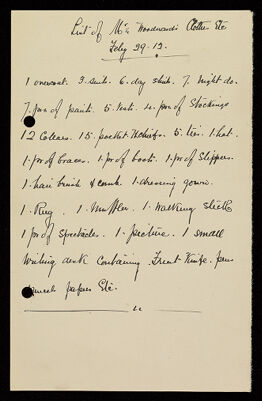 List of Mr Woodward's Clothes Etc
Feby 29. 12.
1 overcoat. 3. suits. 6. day shirts. 7. night do.
7. prs of pants. 5. vests. 4. prs of Stockings
12 Collars. 15. pocket Hkchiefs. 5. ties. 1. hat.
1. pr of braces. 1. pr of boots. 1. pr of slippers.
1. hair brush & comb. 1. dressing gown.
1. Rug. 1. Muffler. 1. walking stick
1 pr of spectacles. 1. picture. 1 small
writing desk containing. Fruit Knife. pens
pencils papers Etc.